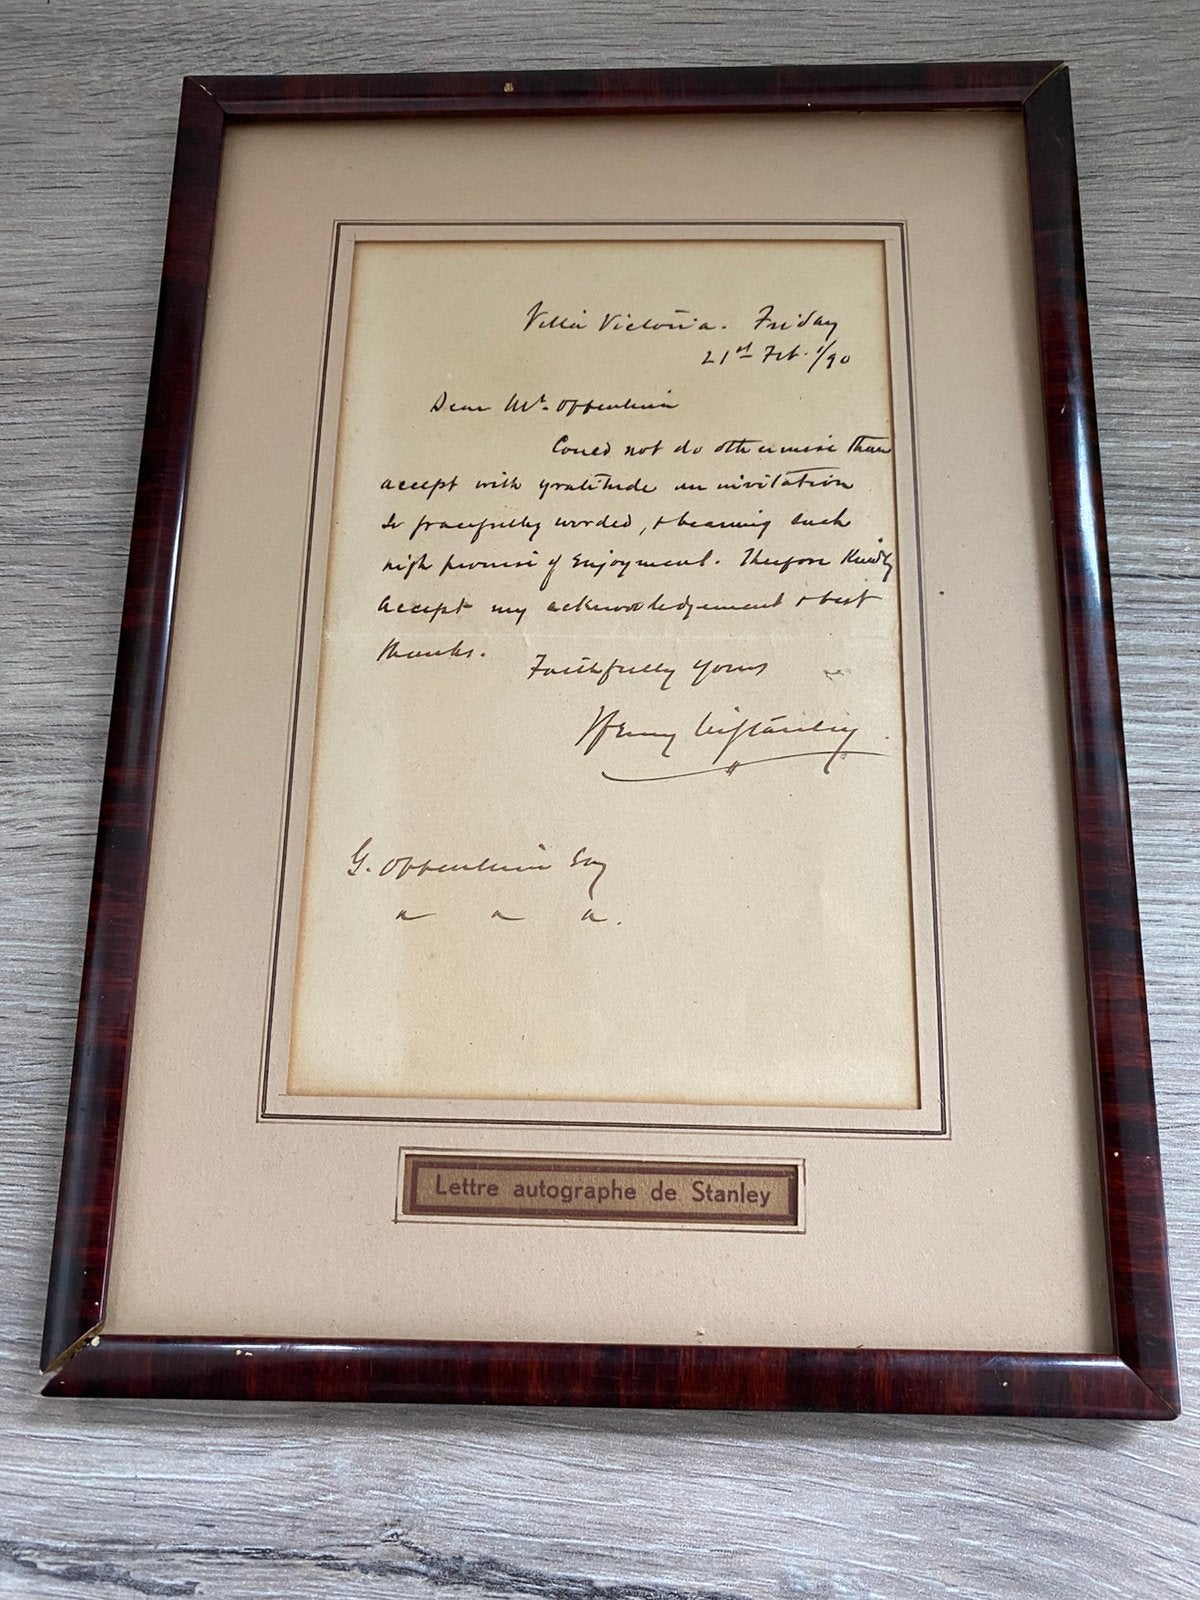 Villa Victoria. Friday
21st Feb. 1/90
Dear Mr. Oppenheim
Could not do otherwise than
accept with gratitude an invitation
so gracefully worded, & bearing such
high promise of Enjoyment. Therefore kindly
accept my acknowledgement & best
thanks.
Faithfully yours
Henry M Stanley
G. Oppenheim Esq
Lettre autographe de Stanley